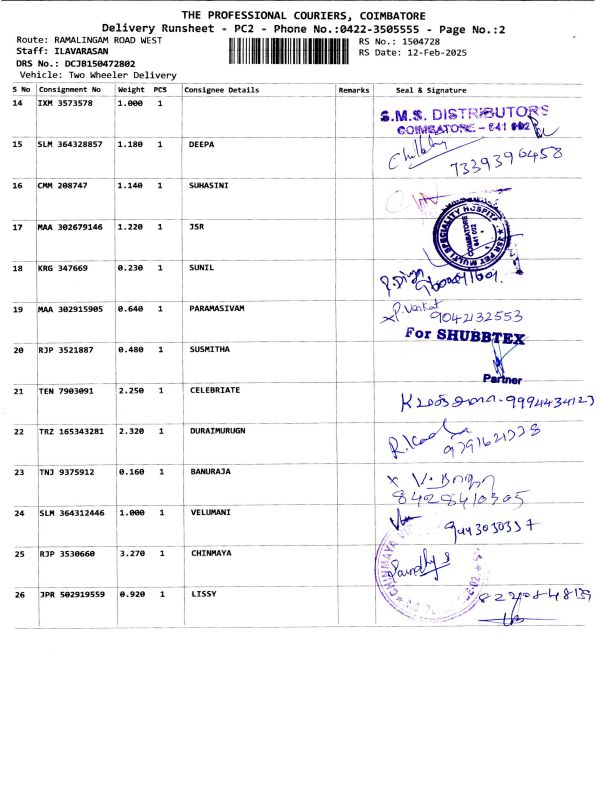 THE PROFESSIONAL COURIERS, COIMBATORE
Delivery Runsheet - PC2 - Phone No.:0422-3505555 - Page No.:2
Route: RAMALINGAM ROAD WEST RS No.: 1504728
Staff: ILAVARASAN RS Date: 12-Feb-2025
DRS No.: DCJB150472802
Vehicle: Two Wheeler Delivery
S No Consignment No Weight PCS Consignee Details Remarks Seal & Signature
14 IXM 3573578 1.000 1
S.M.S. DISTRIBUTORS
COIMBATORE - 641 002
15 SLM 364328857 1.180 1 DEEPA
7339396458
16 CMM 208747 1.140 1 SUHASINI
17 MAA 302679146 1.220 1 JSR
JSR PET MULTI SPECIALITY HOSPITAL
COIMBATORE
641 002
18 KRG 347669 0.230 1 SUNIL
19 MAA 302915905 0.640 1 PARAMASIVAM
P. Venkat
9042132553
For SHUBBTEX
20 RJP 3521887 0.480 1 SUSMITHA
Partner
21 TEN 7903091 2.250 1 CELEBRIATE
9994434123
22 TRZ 165343281 2.320 1 DURAIMURUGN
23 TNJ 9375912 0.160 1 BANURAJA
8428410305
24 SLM 364312446 1.000 1 VELUMANI
25 RJP 3530660 3.270 1 CHINMAYA
CHINMAYA
26 JPR 502919559 0.920 1 LISSY